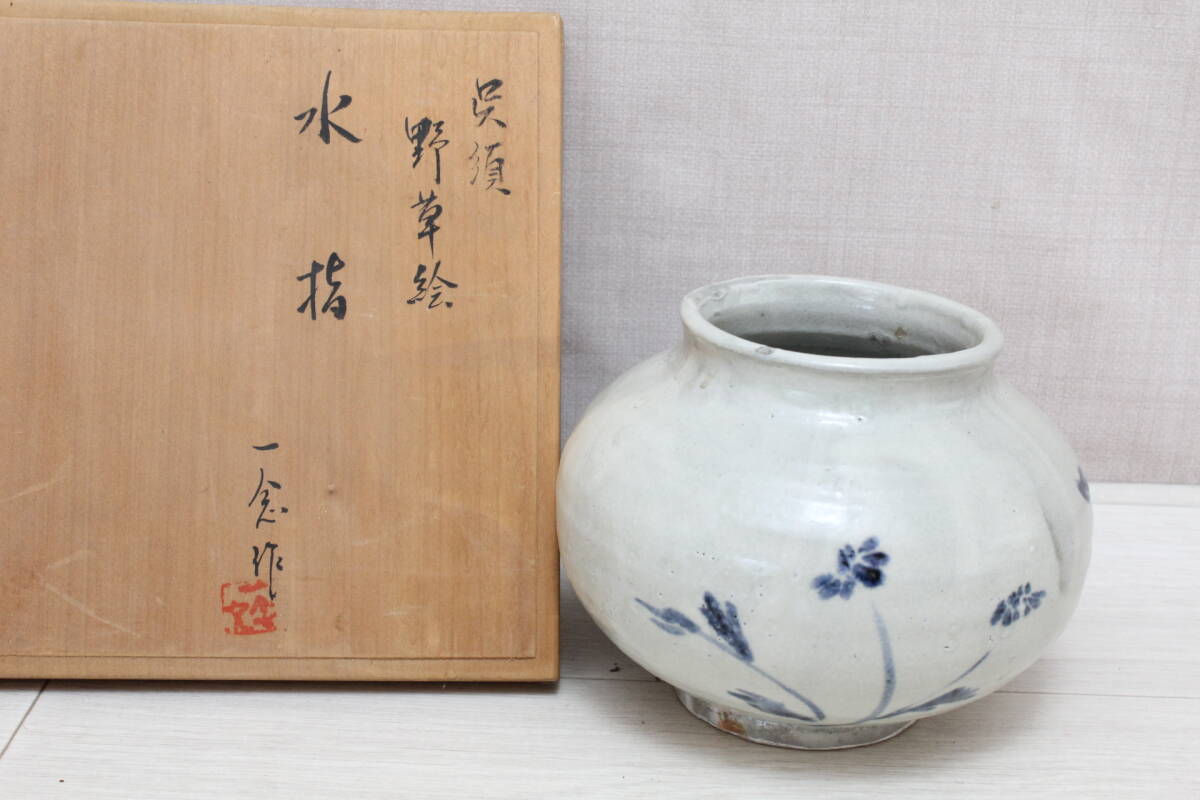 呉須
野草絵
水指
一念作